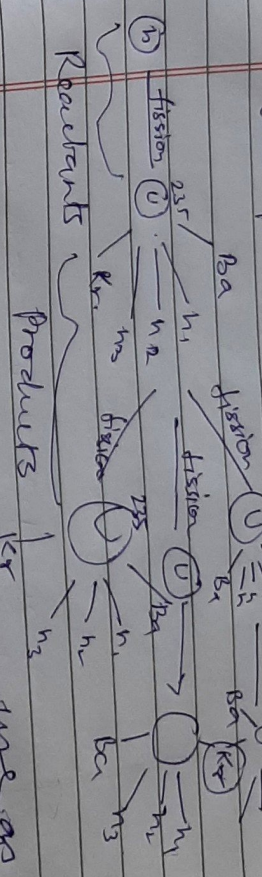 n fission U 235 Ba
n1
n2
n3
Kr
Reactants
Products
fission U Ba n
fission U Ba
fission 235 Ba
n1
n2
n3
Kr
Ba
n1
n2
n3
Ba
Kr